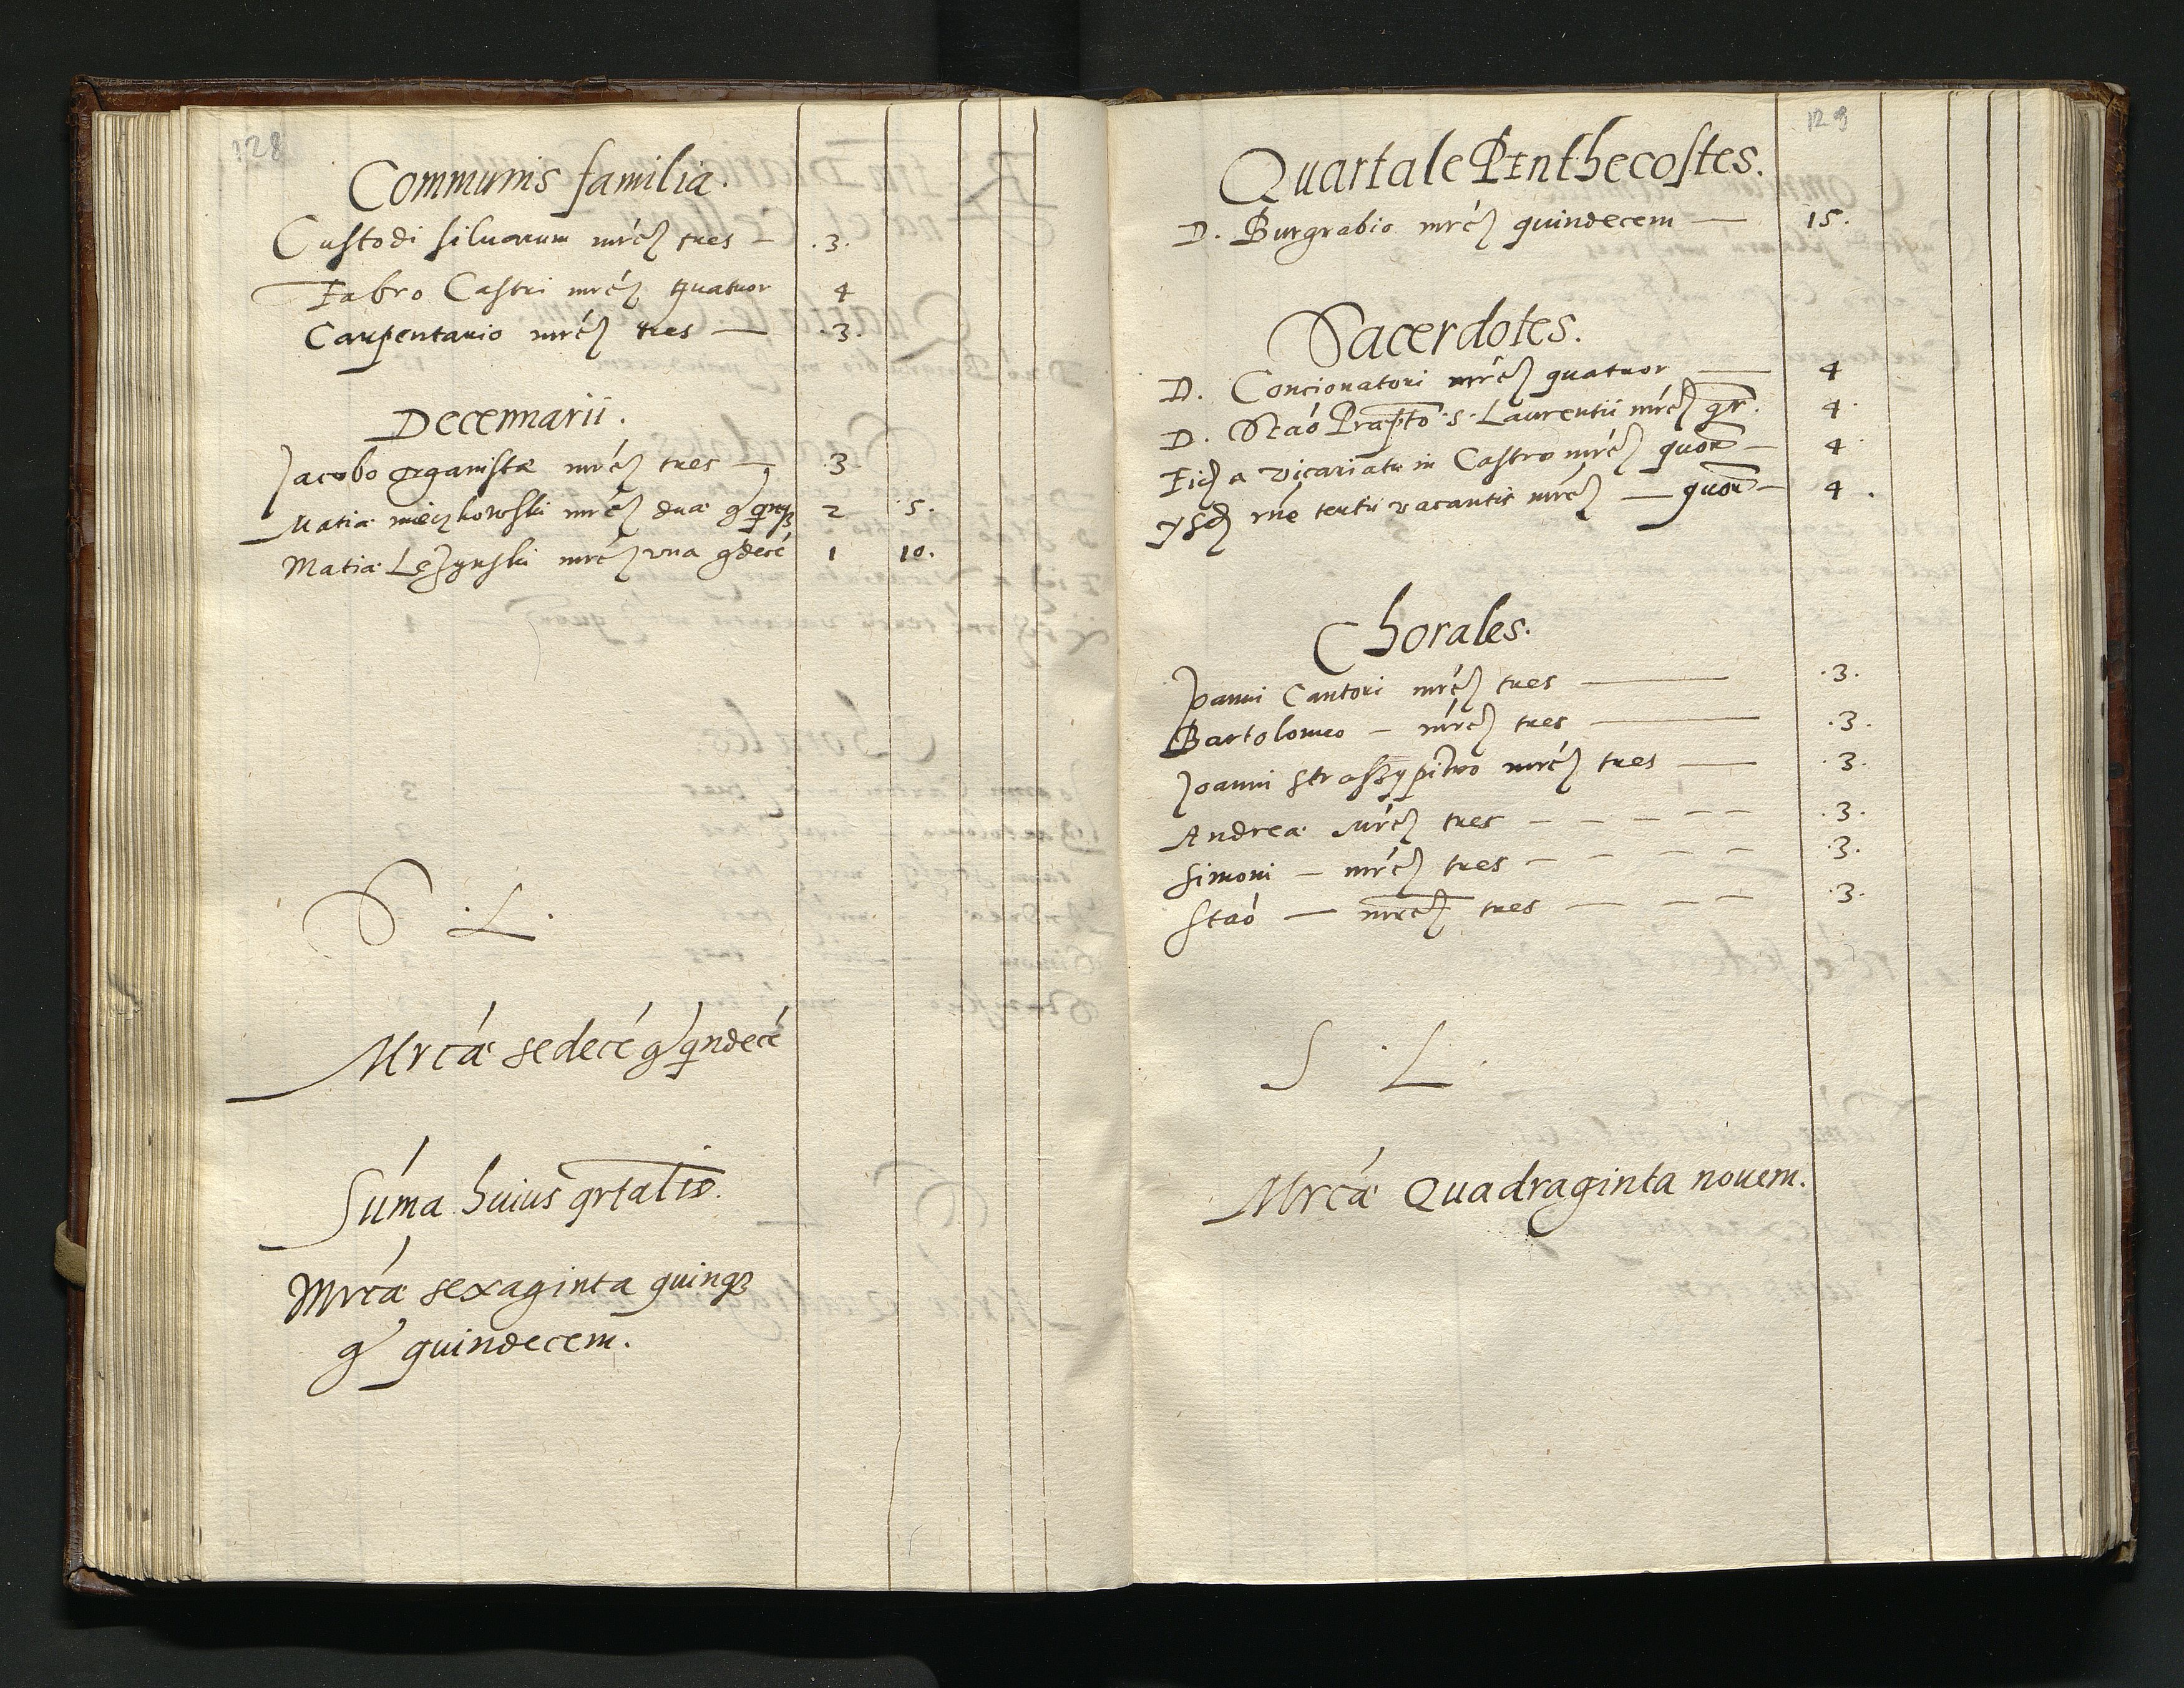 128
Communis familia.
Custodi siluarum mrcas tres — .3.
Fabro Castri mrcas quatuor 4
Carpentario mrcas tres — .3.
Decennarii.
Jacobo organistæ mrcas tres — 3.
Matiæ mieczkowski mrcas duæ g qnqȝ 2 5.
Matiæ Lężynski mrcas vna g decé 1 10.
S. L.
Mrcæ sedecé g qndecé
Súma huius qrtalis.
Mrcæ sexaginta quinqȝ
g quindecem.
129
Quartale Penthecostes.
D. Burgrabio mrcas quindecem — 15.
Sacerdotes.
D. Concionatori mrcas quatuor — 4
D. Staó Præpto S. Laurentii mrcas qr. 4.
a vicariatu in Castro mrcas quor — 4.
tertii vacantis mrcas — quor — 4.
Chorales.
Joanni Cantori mrcas tres — .3.
Bartolomeo — mrcas tres — .3.
Joanni straszypitwo mrcas tres — .3.
Andreæ mrcas tres - - - - - .3.
Simoni — mrcas tres - - - - .3.
Staó — mrcas tres — - - - .3.
S. L.
Mrcæ Quadraginta nouem.